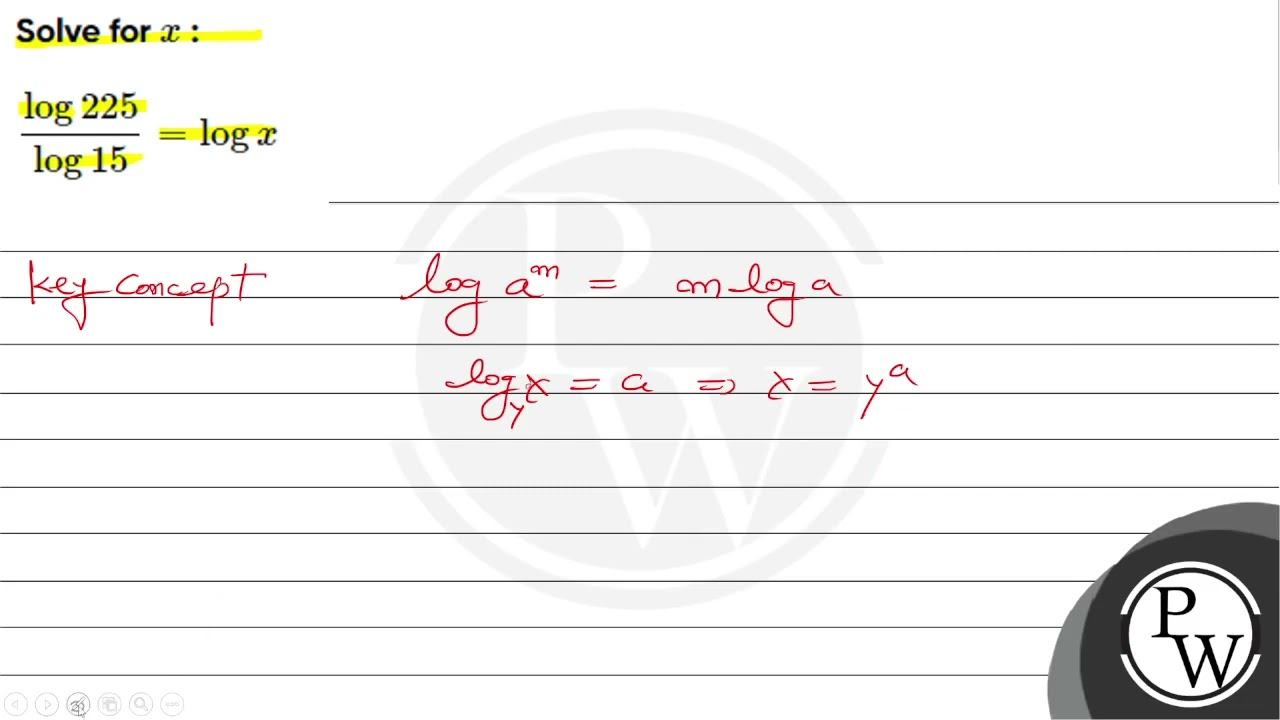 Solve for x :
log 225 / log 15 = log x
Key concept log a^m = m log a
log_y x = a ⇒ x = y^a
PW
PW